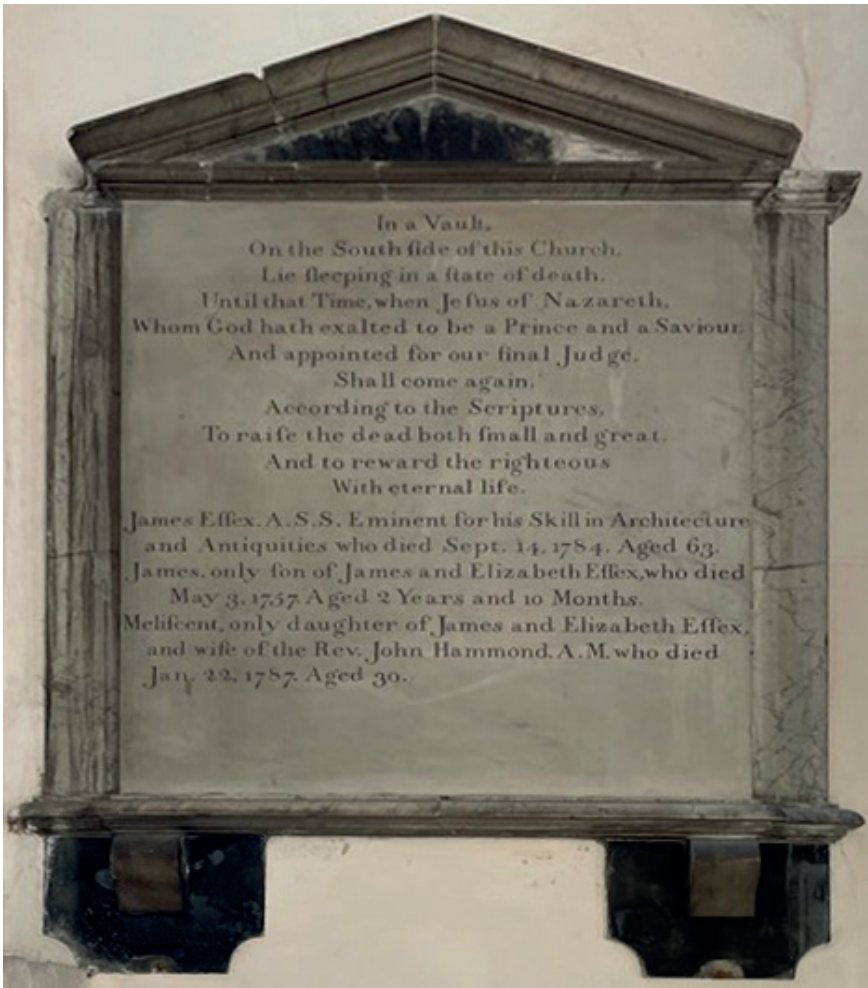 In a Vault,
On the South ſide of this Church,
Lie ſleeping in a ſtate of death,
Until that Time, when Jeſus of Nazareth,
Whom God hath exalted to be a Prince and a Saviour
And appointed for our final Judge,
Shall come again,
According to the Scriptures,
To raiſe the dead both ſmall and great,
And to reward the righteous
With eternal life.
James Eſſex. A.S.S. Eminent for his Skill in Architecture
and Antiquities who died Sept. 14, 1784. Aged 63.
James, only ſon of James and Elizabeth Eſſex, who died
May 3, 1757. Aged 2 Years and 10 Months.
Meliſcent, only daughter of James and Elizabeth Eſſex,
and wife of the Rev. John Hammond. A.M. who died
Jan. 22, 1787. Aged 30.